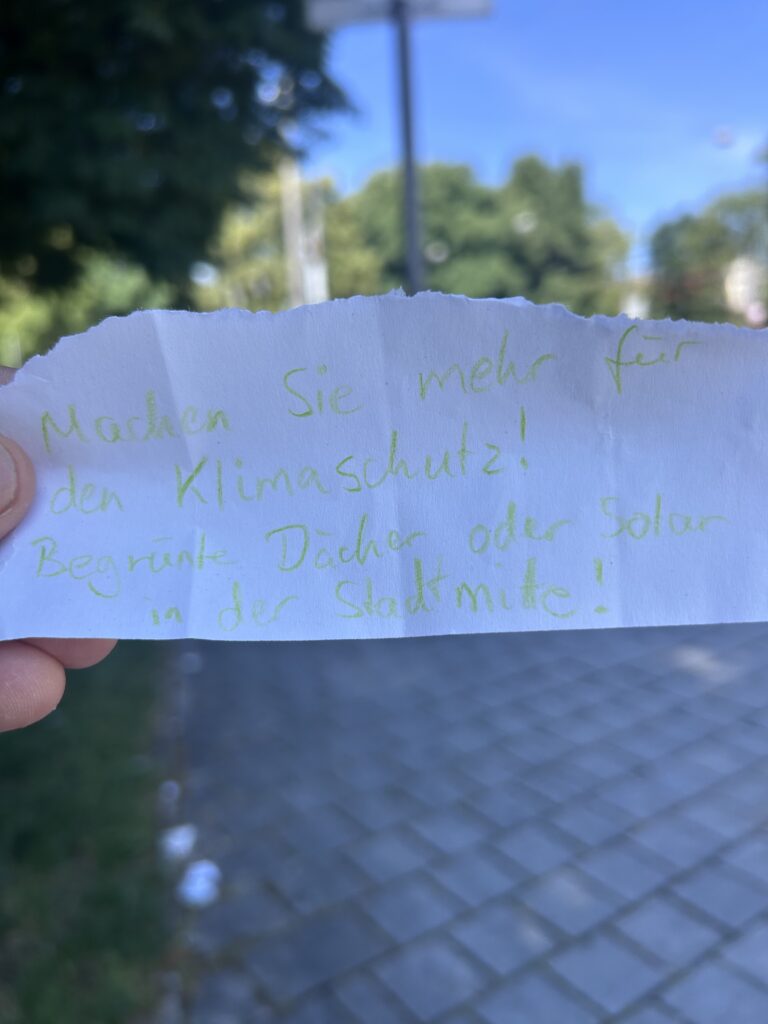 Machen Sie mehr für
den Klimaschutz!
Begrünte Dächer oder Solar
in der Stadtmitte!